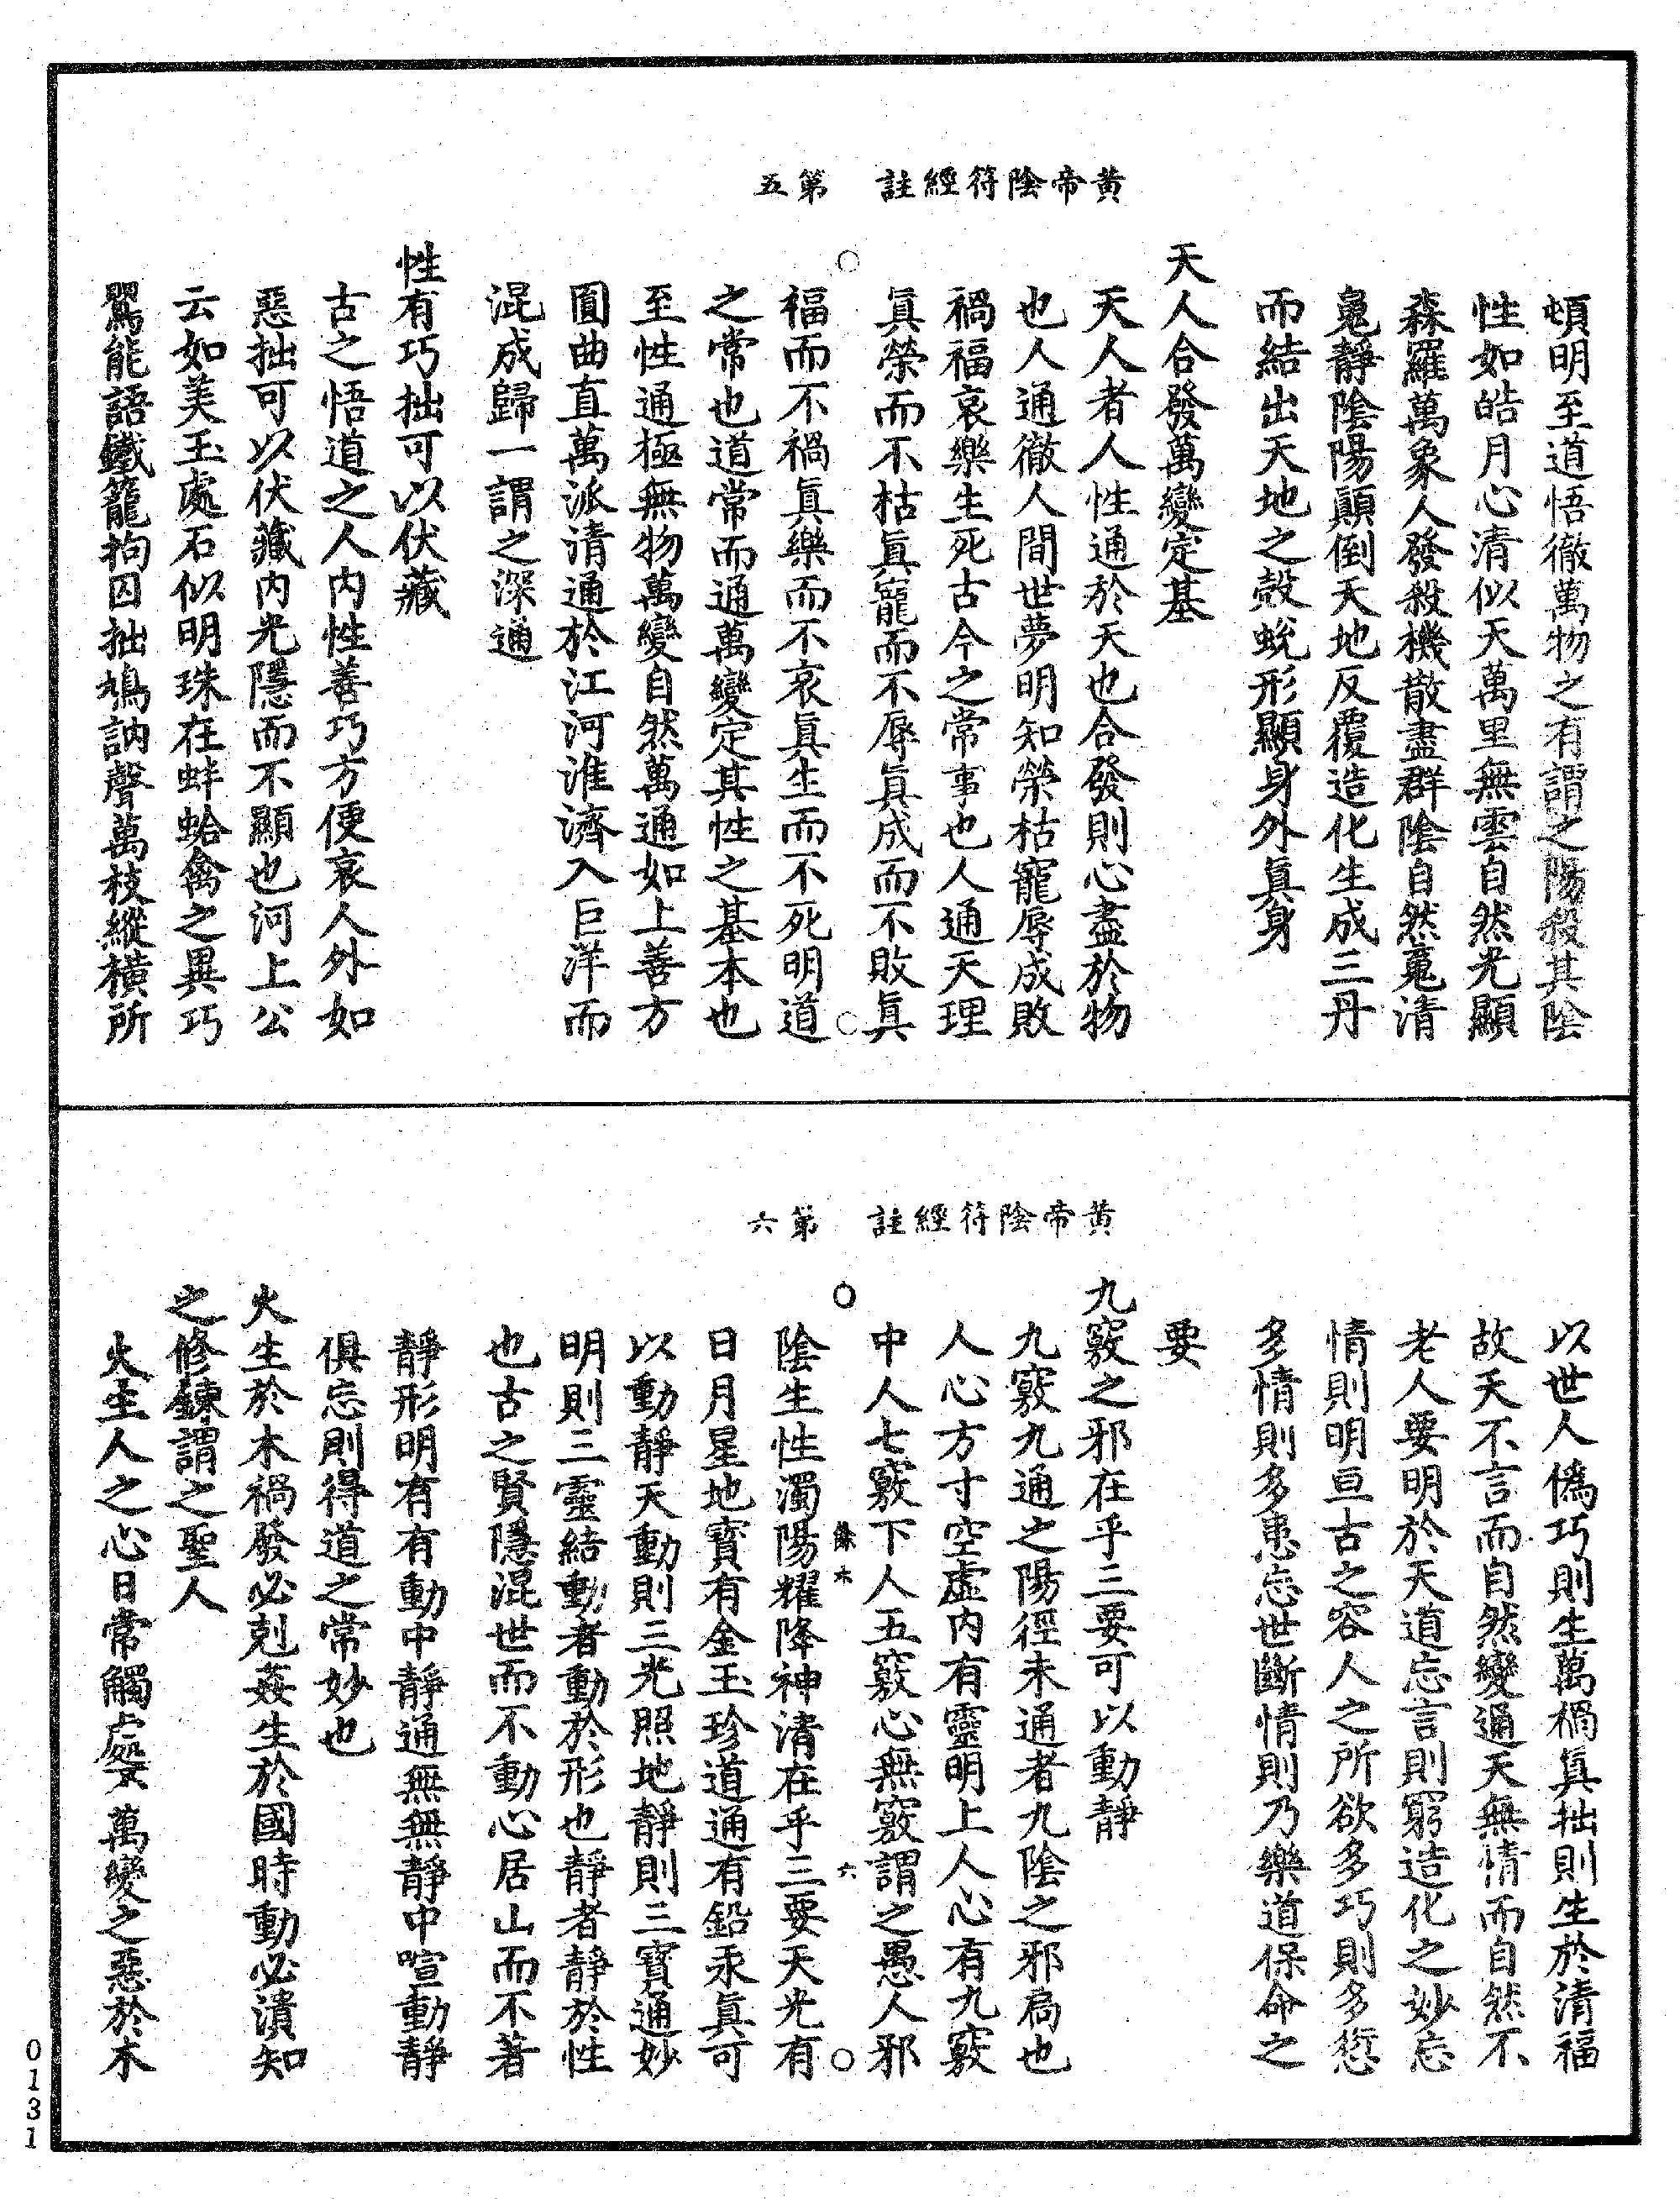 黃帝陰符經註　第五
頓明至道悟徹萬物之有謂之陽殺其陰
性如皓月心清似天萬里無雲自然光顯
森羅萬象人發殺機散盡群陰自然䰟清
䰟靜陰陽顛倒天地反覆造化生成三丹
而結出天地之殼蛻形顯身外眞身
天人合發萬變定基
天人者人性通於天也合發則心盡於物
也人通徹人間世夢明知榮枯寵辱成敗
禍福哀樂生死古今之常事也人通天理
眞榮而不枯眞寵而不辱眞成而不敗眞
福而不禍眞樂而不哀眞生而不死明道
之常也道常而通萬變定其性之基本也
至性通極無物萬變自然萬通如上善方
圓曲直萬派清通於江河淮濟入巨洋而
混成歸一謂之深通
性有巧拙可以伏藏
古之悟道之人內性善巧方便哀人外如
惡拙可以伏藏內光隱而不顯也河上公
云如美玉處石似明珠在蚌蛤禽之異巧
鸎能語鐵籠拘囚拙鳩訥聲萬枝縱橫所
黃帝陰符經註　第六
以世人僞巧則生萬禍眞拙則生於清福
故天不言而自然變通天無情而自然不
老人要明於天道忘言則窮造化之妙忘
情則明亘古之容人之所欲多巧則多愆
多情則多患忘世斷情則乃樂道保命之
要
九竅之邪在乎三要可以動靜
九竅九通之陽徑未通者九陰之邪局也
人心方寸空虛內有靈明上人心有九竅
中人七竅下人五竅心無竅謂之愚人邪
餘六　六
陰生性濁陽耀降神清在乎三要天光有
日月星地寶有金玉珍道通有鉛汞眞可
以動靜天動則三光照地靜則三寶通妙
明則三靈結動者動於形也靜者靜於性
也古之賢隱混世而不動心居山而不著
靜形明有有動中靜通無無靜中喧動靜
俱忘則得道之常妙也
火生於木禍發必剋姦生於國時動必潰知
之修鍊謂之聖人
火生人之心日常觸處萬變之惡於木
0131